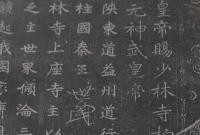 皇帝賜少林寺
元神武皇帝
陝東道益州道行
柱國秦王世民
林寺上座寺主
之主世界傾淪